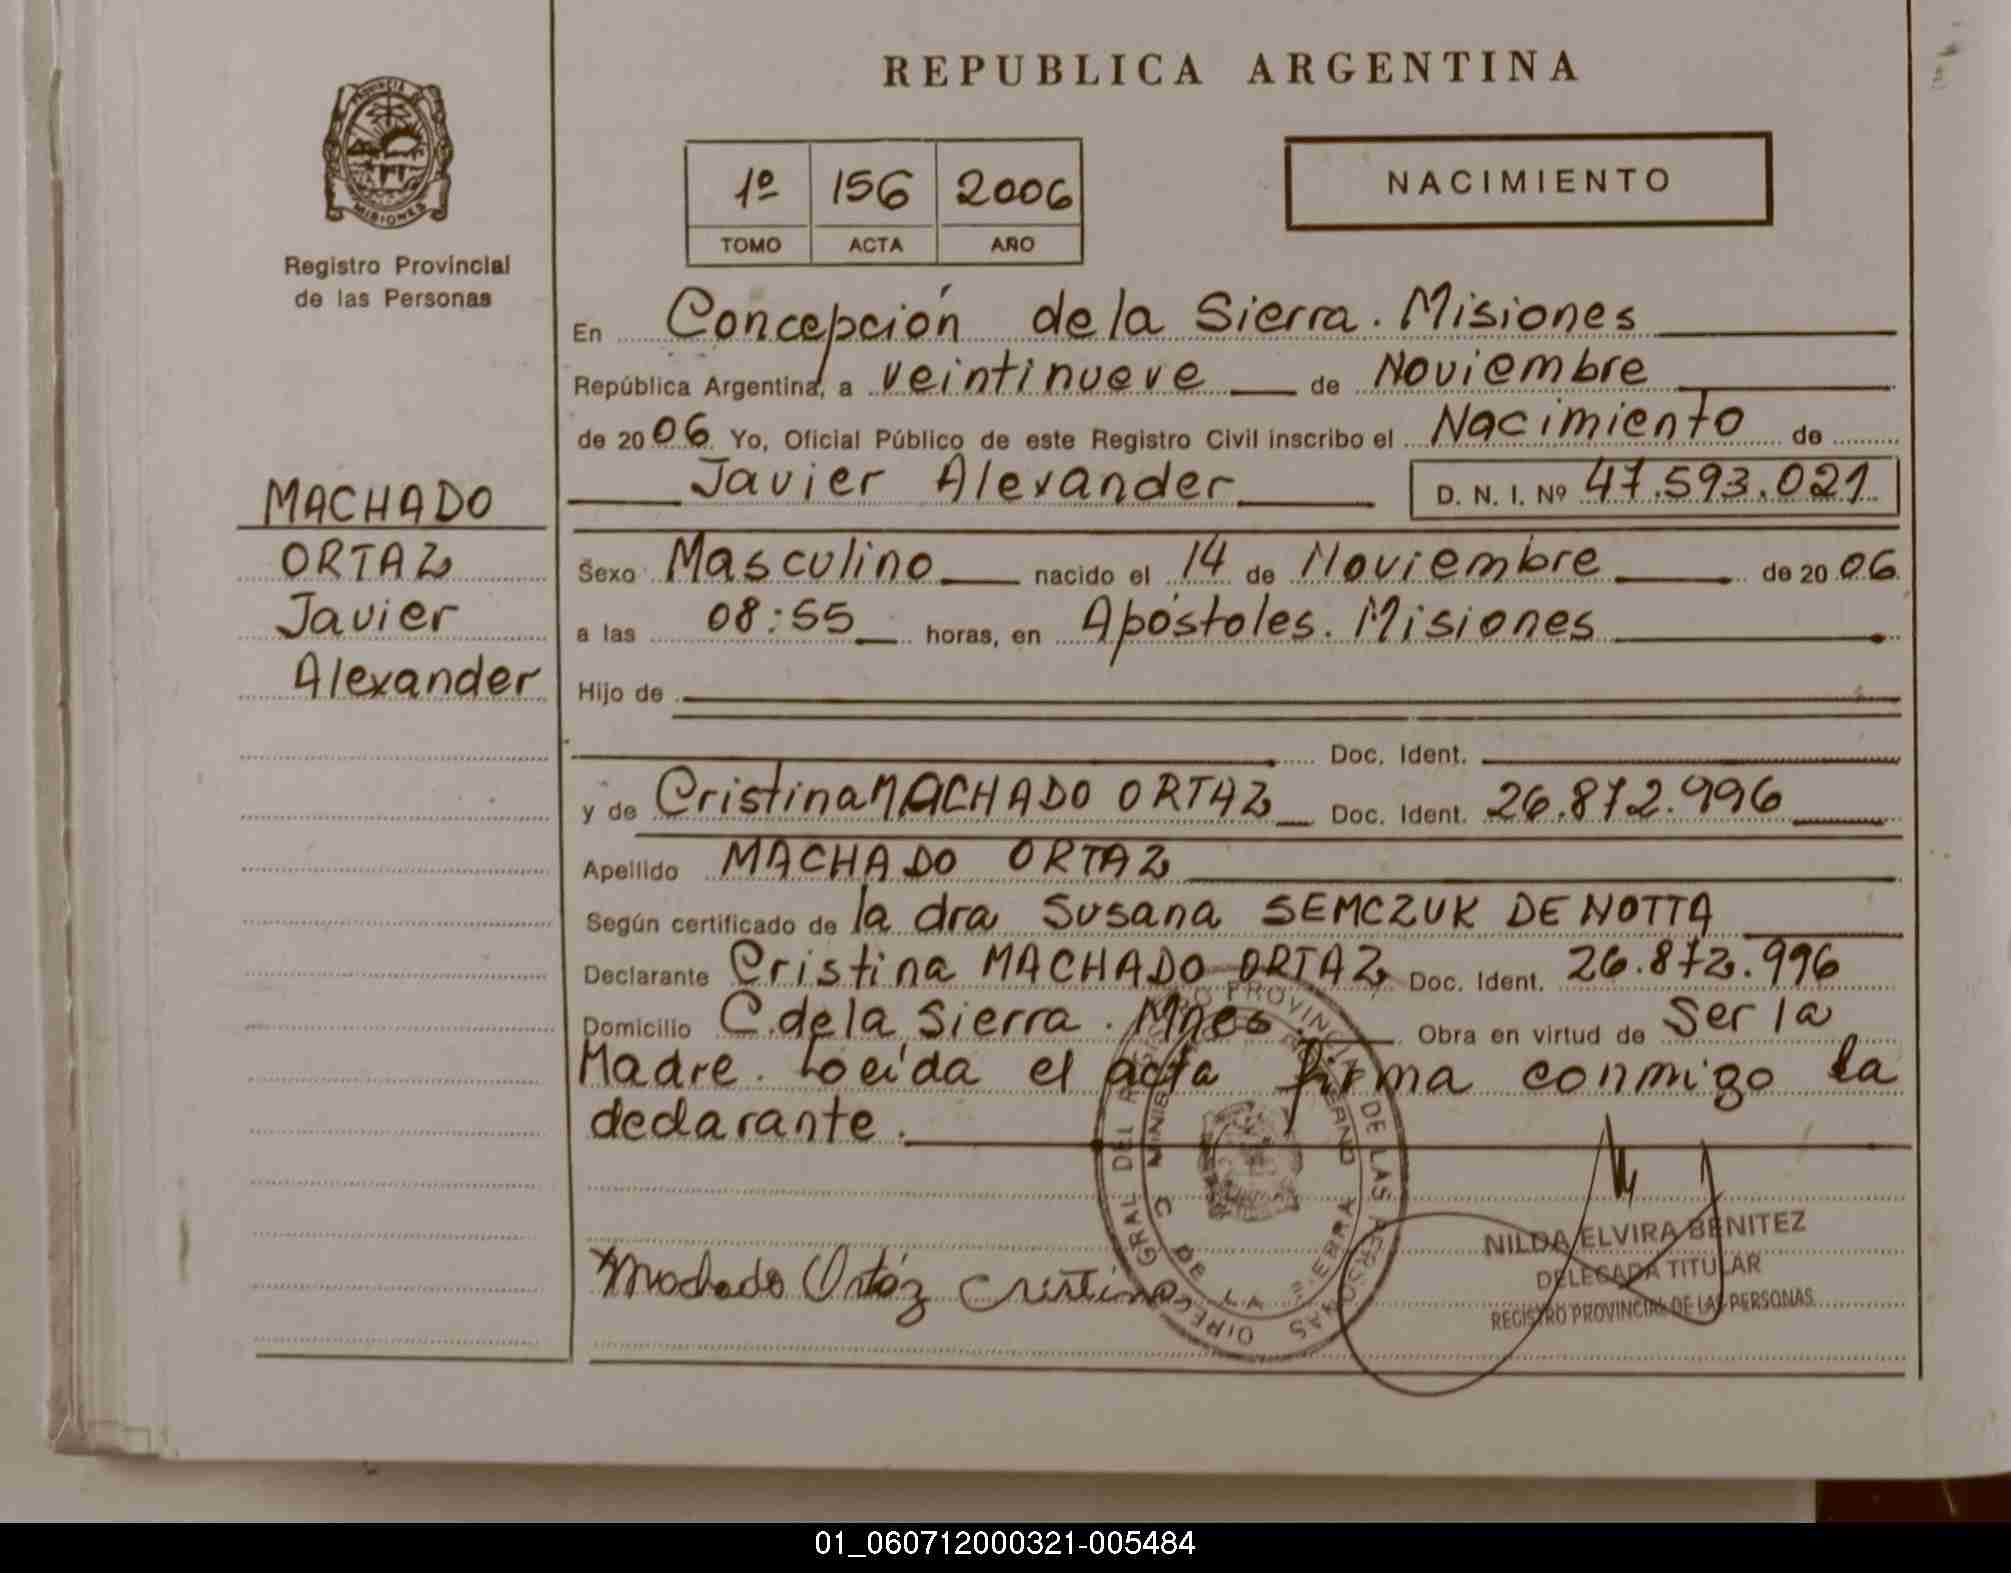 REPUBLICA ARGENTINA
PROVINCIA DE
MISIONES
Registro Provincial
de las Personas
1º 156 2006
TOMO ACTA AÑO
NACIMIENTO
En Concepción de la Sierra. Misiones
República Argentina, a veintinueve de Noviembre
de 2006 Yo, Oficial Público de este Registro Civil inscribo el Nacimiento de
Javier Alexander D. N. I. Nº 47.593.021
MACHADO
ORTAZ
Javier
Alexander
Sexo Masculino nacido el 14 de Noviembre de 2006
a las 08:55 horas, en Apóstoles. Misiones
Hijo de
Doc. Ident.
y de Cristina MACHADO ORTAZ Doc. Ident. 26.872.996
Apellido MACHADO ORTAZ
Según certificado de la dra Susana SEMCZUK DE NOTTA
Declarante Cristina MACHADO ORTAZ Doc. Ident. 26.872.996
Domicilio C. de la Sierra. Mnes. Obra en virtud de Ser la
Madre. Loeída el acta firma conmigo la
declarante.
Machado Ortáz Cristina
NILDA ELVIRA BENITEZ
DELEGADA TITULAR
REGISTRO PROVINCIAL DE LAS PERSONAS
01_060712000321-005484